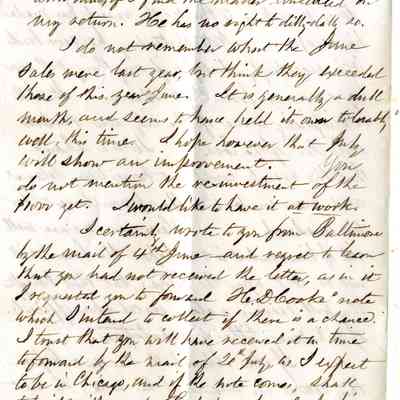 my return. He has no right to dilly-dally so.
I do not remember what the June
sales were last year, but think they exceeded
those of this year June. It is generally a dull
month, and seems to have held its own tolerably
well, this time. I hope however that July
will show an improvement. You
do not mention the reinvestment of the
yet. I would like to have it at work.
I certainly wrote to you from Baltimore
by the mail of 4th June and regret to learn
that you had not received the letter, as in it
I requested you to forward H. D. Cooke's note
which I intend to collect if there is a chance.
I trust that you will have received it in time
to forward by the mail of 20th July, as I expect
to be in Chicago, and if the note comes, shall